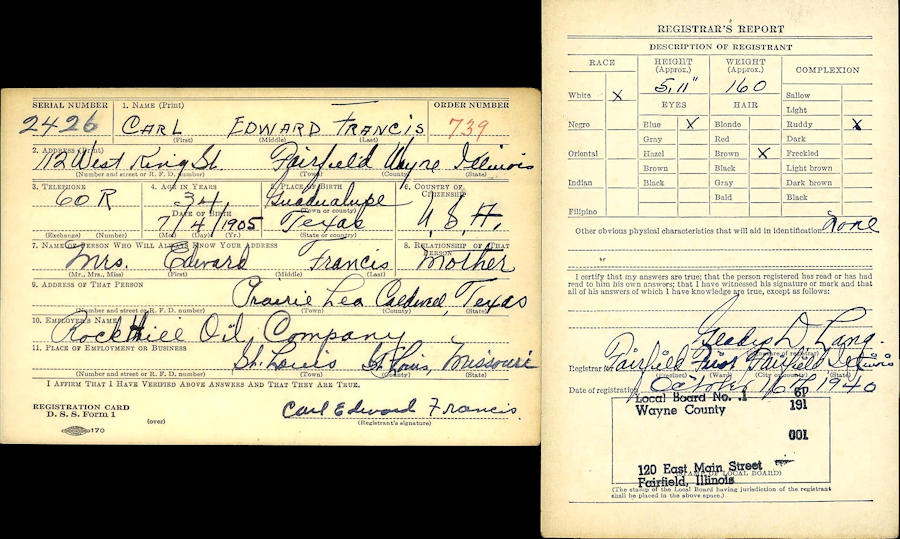 SERIAL NUMBER 1. NAME (Print) ORDER NUMBER
2426 CARL EDWARD FRANCIS 739
(First) (Middle) (Last)
2. ADDRESS (Print)
112 West King St. Fairfield Wayne Illinois
(Number and street or R. F. D. number) (Town) (County) (State)
3. TELEPHONE 4. AGE IN YEARS 5. PLACE OF BIRTH 6. COUNTRY OF CITIZENSHIP
60 R 34 Guadualupe
DATE OF BIRTH (Town or county)
7/4/1905 Texas U.S.A.
(Exchange) (Number) (Mo.) (Day) (Yr.) (State or country)
7. NAME OF PERSON WHO WILL ALWAYS KNOW YOUR ADDRESS 8. RELATIONSHIP OF THAT PERSON
Mrs. Edward Francis Mother
(Mr., Mrs., Miss) (First) (Middle) (Last)
9. ADDRESS OF THAT PERSON
Prairie Lea Caldwell, Texas
(Number and street or R. F. D. number) (Town) (County) (State)
10. EMPLOYER'S NAME
Rock Hill Oil Company
11. PLACE OF EMPLOYMENT OR BUSINESS
St. Louis St. Louis, Missouri
(Number and street or R. F. D. number) (Town) (County) (State)
I AFFIRM THAT I HAVE VERIFIED ABOVE ANSWERS AND THAT THEY ARE TRUE.
REGISTRATION CARD
D. S. S. Form 1 Carl Edward Francis
170 (over) (Registrant's signature)
REGISTRAR'S REPORT
DESCRIPTION OF REGISTRANT
RACE HEIGHT (Approx.) WEIGHT (Approx.) COMPLEXION
5,11" 160
White X Sallow
EYES HAIR Light
Negro Blue X Blonde Ruddy X
Gray Red Dark
Oriental Hazel Brown X Freckled
Brown Black Light brown
Indian Black Gray Dark brown
Bald Black
Filipino
Other obvious physical characteristics that will aid in identification None
I certify that my answers are true; that the person registered has read or has had
read to him his own answers; that I have witnessed his signature or mark and that
all of his answers of which I have knowledge are true, except as follows:
D. Lang.
(Signature of registrar)
Registrar for Fairfield First Fairfield Illinois
(Precinct) (Ward) (City or county) (State)
Date of registration October 16th 1940
Local Board No. 1 6P
Wayne County 191
001
120 East Main Street
(STAMP OF LOCAL BOARD)
Fairfield, Illinois
(The stamp of the Local Board having jurisdiction of the registrant
shall be placed in the above space.)